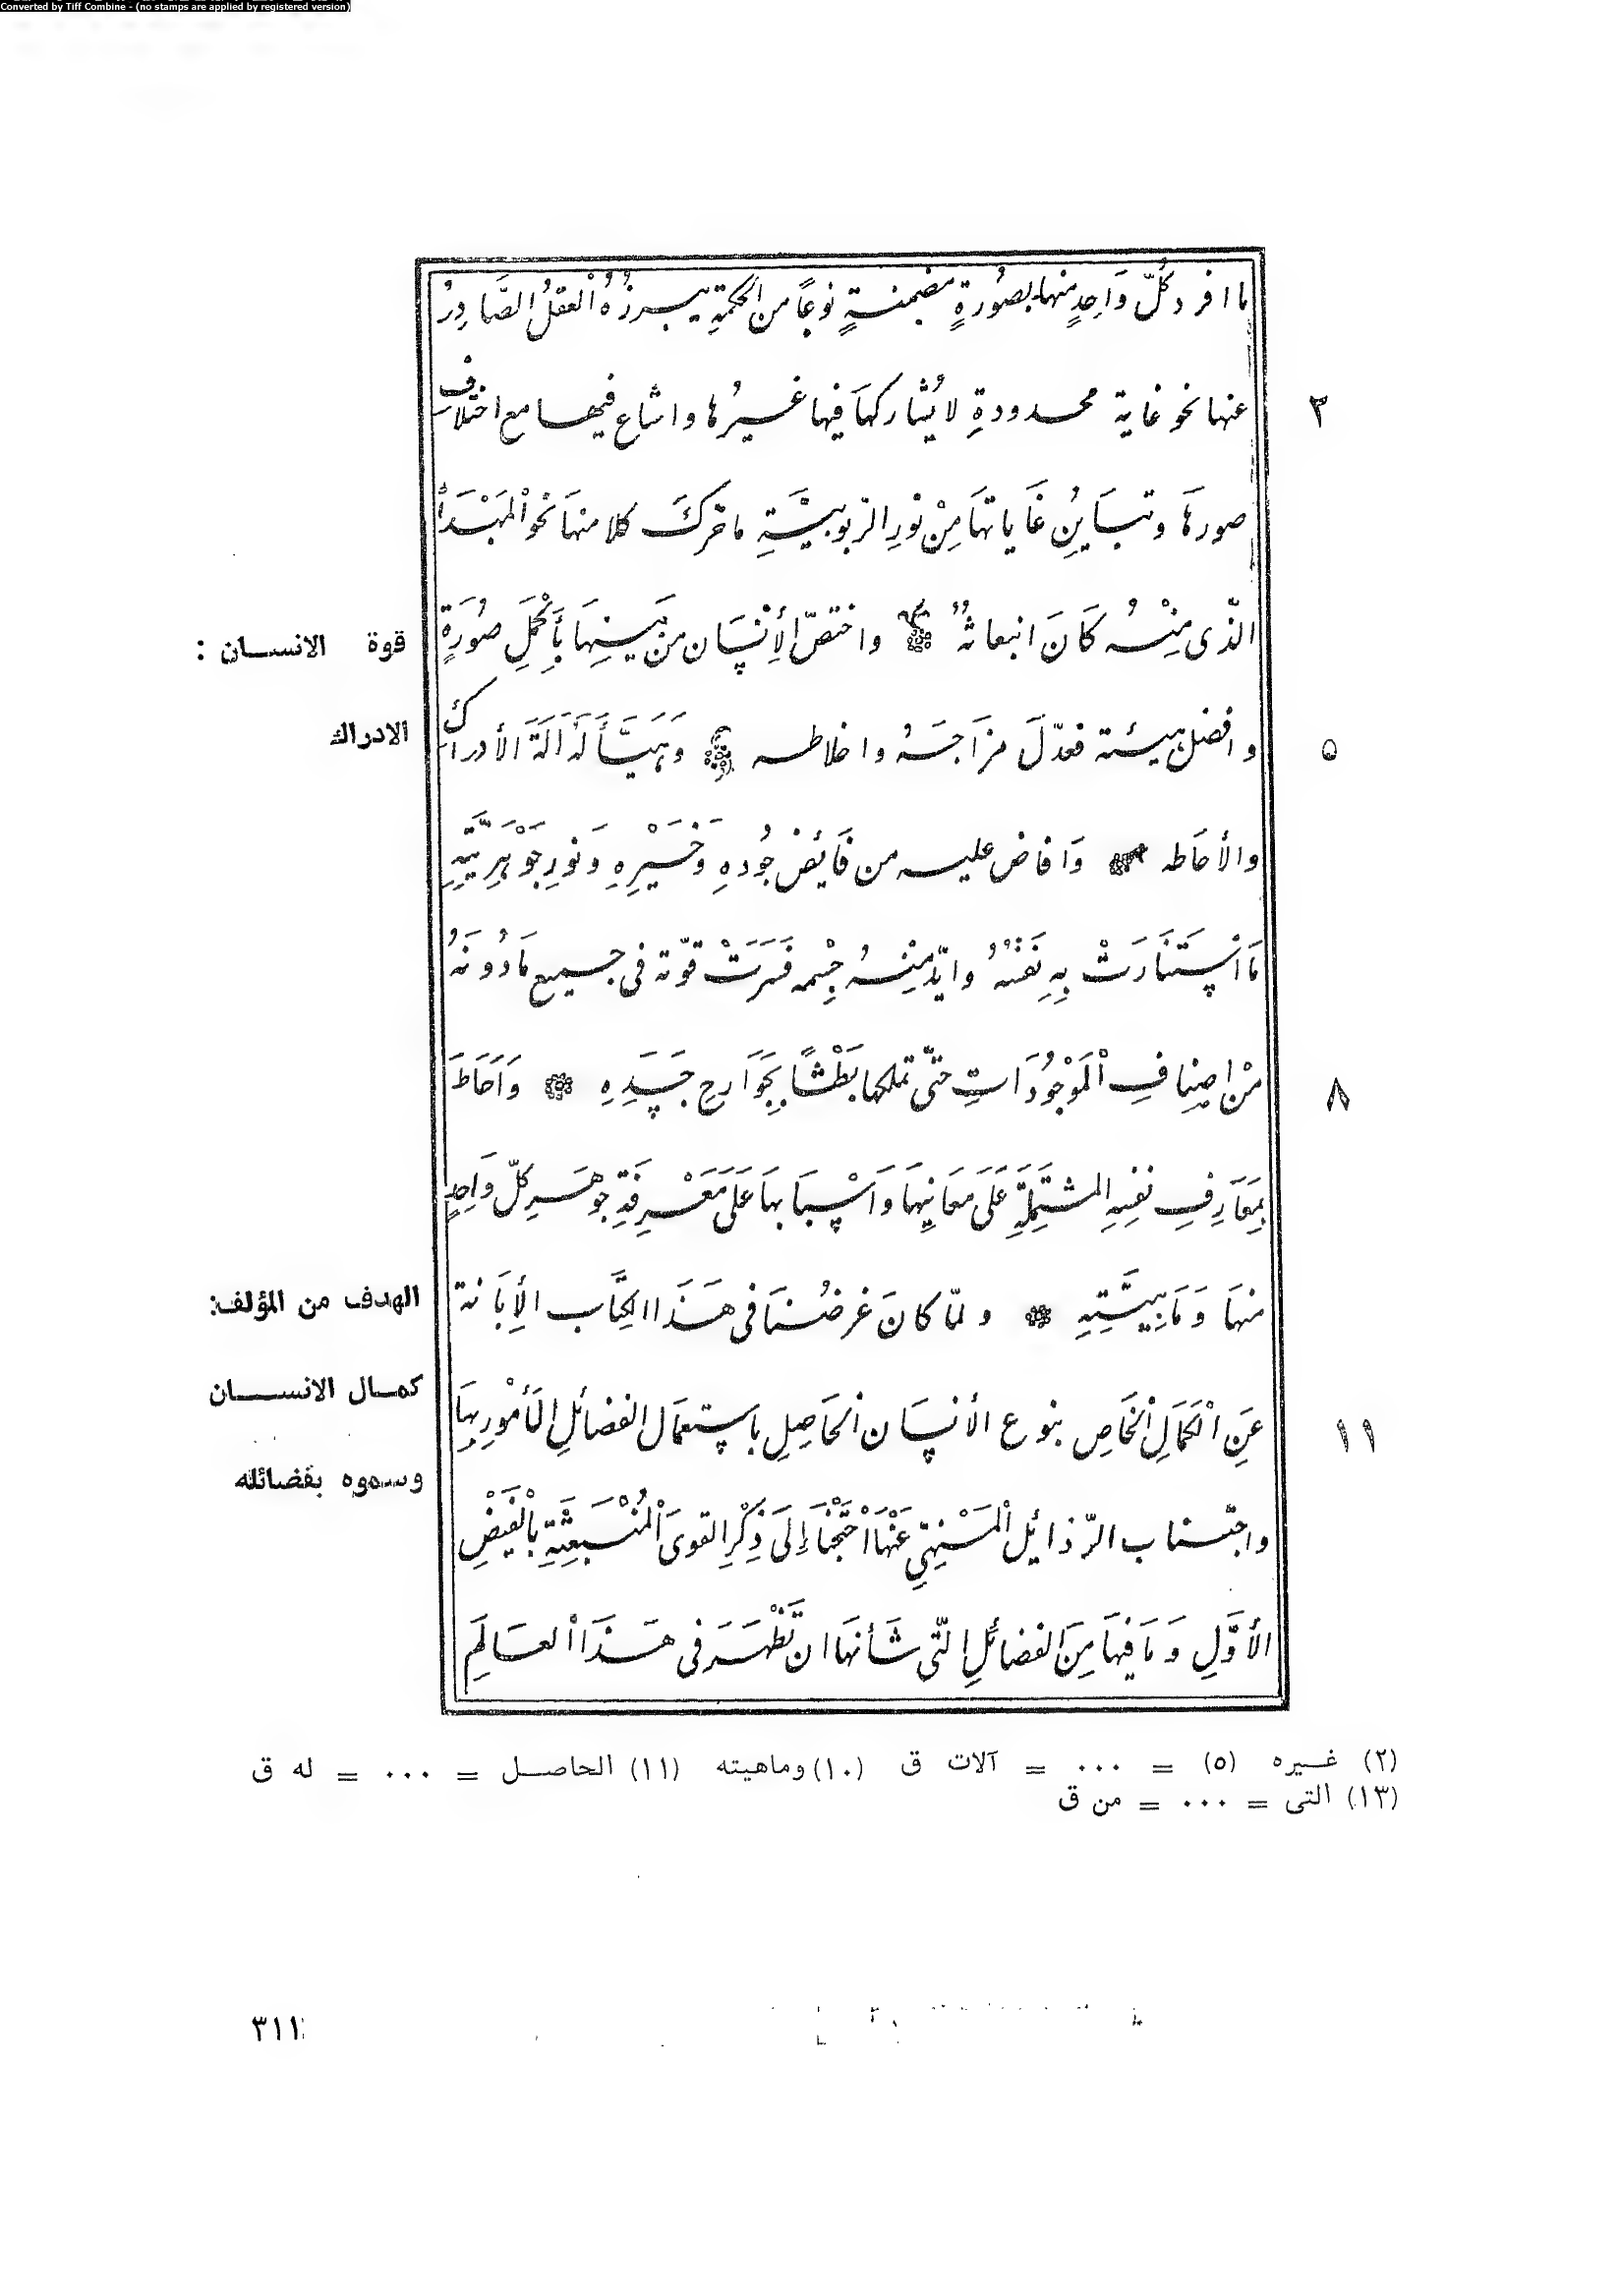 Converted by Tiff Combine - (no stamps are applied by registered version)
ما افرد كُلّ وَاحِدٍ منها بصُورَةٍ مضمنةٍ نوعًا من الحكمةِ يبرزُهُ الْعَقلُ الصَّادِرُ
عنها نحو غاية محدودةِ لا يُشاركهَا فيها غيرُها واشاع فيها مع اختلافِ
٢
صورهَا وتبَايُنِ غَاياتهَا مِنْ نورِ الرّبوبيَّةِ ما حرّكَ كلا منهَا نحو الْمَبْدَأ
الذّى مِنْهُ كَانَ انبعاثهُ واختصّ الأِنْسَان من بَيِنهَا بأَكْمَلِ صُورَةٍ
قوة الانسان :
وافضل هيئة فعدّلَ مزَاجَهُ واخلاطه وَهَيَّأَ لَهُ آلَةَ الأدراكِ
٥
الادراك
والأحَاطه وَافاض عليه من فَائض جُودهِ وَخَيْرِهِ وَنورِ جَوْهَرِيَّتِهِ
مَا اسْتَنَارَتْ بِهِ نَفْسُهُ وايّد مِنْهُ جِسْمه فَسَرَتْ قوّته فى جميع مَادُونَهُ
مِنْ اصنِافِ الْمَوْجُودَاتِ حتّى تملكها بَطْشًا بِجَوَارحِ جَسَدِهِ وَاَحَاطَ
٨
بمَعَارِفِ نفسِهِ المشتَمِلَةِ عَلَى مَعَانِيهَا وَاَسْبَابهَا عَلَى مَعْرِفَةِ جوهَرِ كلّ وَاحِدٍ
منهَا وَمَاهِيَّتِهِ ولمّا كانَ غرضُنَا فى هَذَا الكِتَاب الأِبَانة
الهدف من المؤلف:
عَنِ الْكَمَالِ الْخَاصِ بنوع الأنسَان الْحَاصِلِ باستِعمَال الفضائلِ الْمأمُورِ بِهَا
كمال الانسان
١١
وسموه بفضائله
واجتناب الرّذائِل الْمَنهِىِّ عَنْهَا احْتَجْنَا إلَى ذِكْرِ القوىَ الْمُنْبَعِثَةِ بِالْفَيْضِ
الأوَّلِ وَمَا فيهَا مِنَ الفضائلِ التّى شَأنهَا ان تَظْهَرَ فى هَذَا الْعَالَمِ
(٢) غيره (٥) = ٠٠٠ = آلات ق (١٠) وماهيته (١١) الحاصل = ٠٠٠ = له ق
(١٣) التى = ٠٠٠ = من ق
٣١١